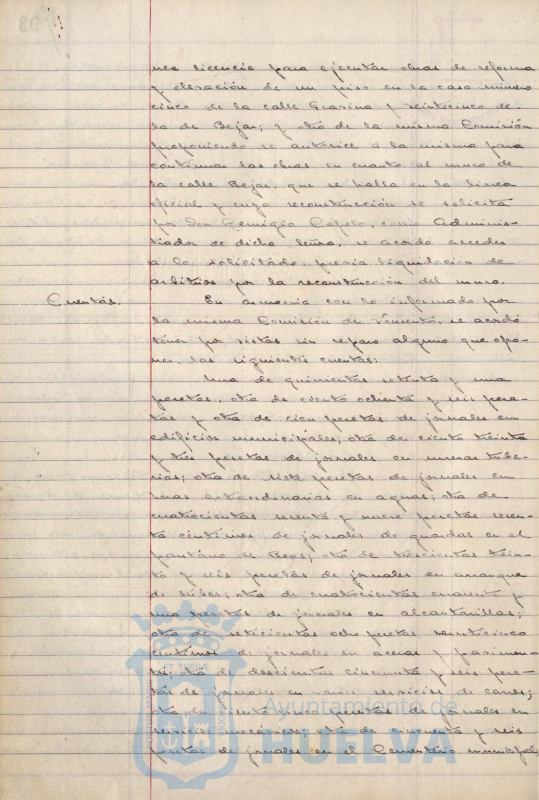 nes licencia para ejecutar obras de reforma
y elevación de un piso en la casa número
cinco de la calle Gravina y veinticinco de
la de Bejar; y otro de la misma Comisión
proponiendo se autorice a la misma para
continuar las obras en cuanto al muro de
la calle Bejar, que se halla en la línea
oficial y cuya reconstrucción se solicita
por Don Remigio Capelo, como Adminis-
trador de dicha Señora, se acordó acceder
a lo solicitado, previa liquidación de
arbitrios por la reconstrucción del muro.
Cuentas. En armonía con lo informado por
la misma Comisión de Fomento, se acordó
tener por vistas sin reparo alguno que opo-
ner, las siguientes cuentas:
Una de quinientas setenta y una
pesetas, otra de ciento ochenta y seis pese-
tas y otra de cien pesetas de jornales en
edificios municipales; otra de ciento treinta
y tres pesetas de jornales en nuevas tube-
rias; otra de siete pesetas de jornales en
horas extraordinarias en aguas; otra de
cuatrocientas sesenta y nueve pesetas sesen-
ta céntimos de jornales de guardas en el
pantano de Beas; otra de trescientas trein-
ta y seis pesetas de jornales en arranque
de tubos; otra de cuatrocientas cuarenta y
una pesetas de jornales en alcantarillas;
otra de setecientas ocho pesetas veinticinco
centimos de jornales en aceras y pavimen-
tos; otra de doscientas cincuenta y seis pese-
tas de jornales en varios servicios de carros;
otra de ciento once pesetas de jornales en
servicios mecánicos; otra de cincuenta y seis
pesetas de jornales en el Cementerio municipal;
Ayuntamiento de
HUELVA